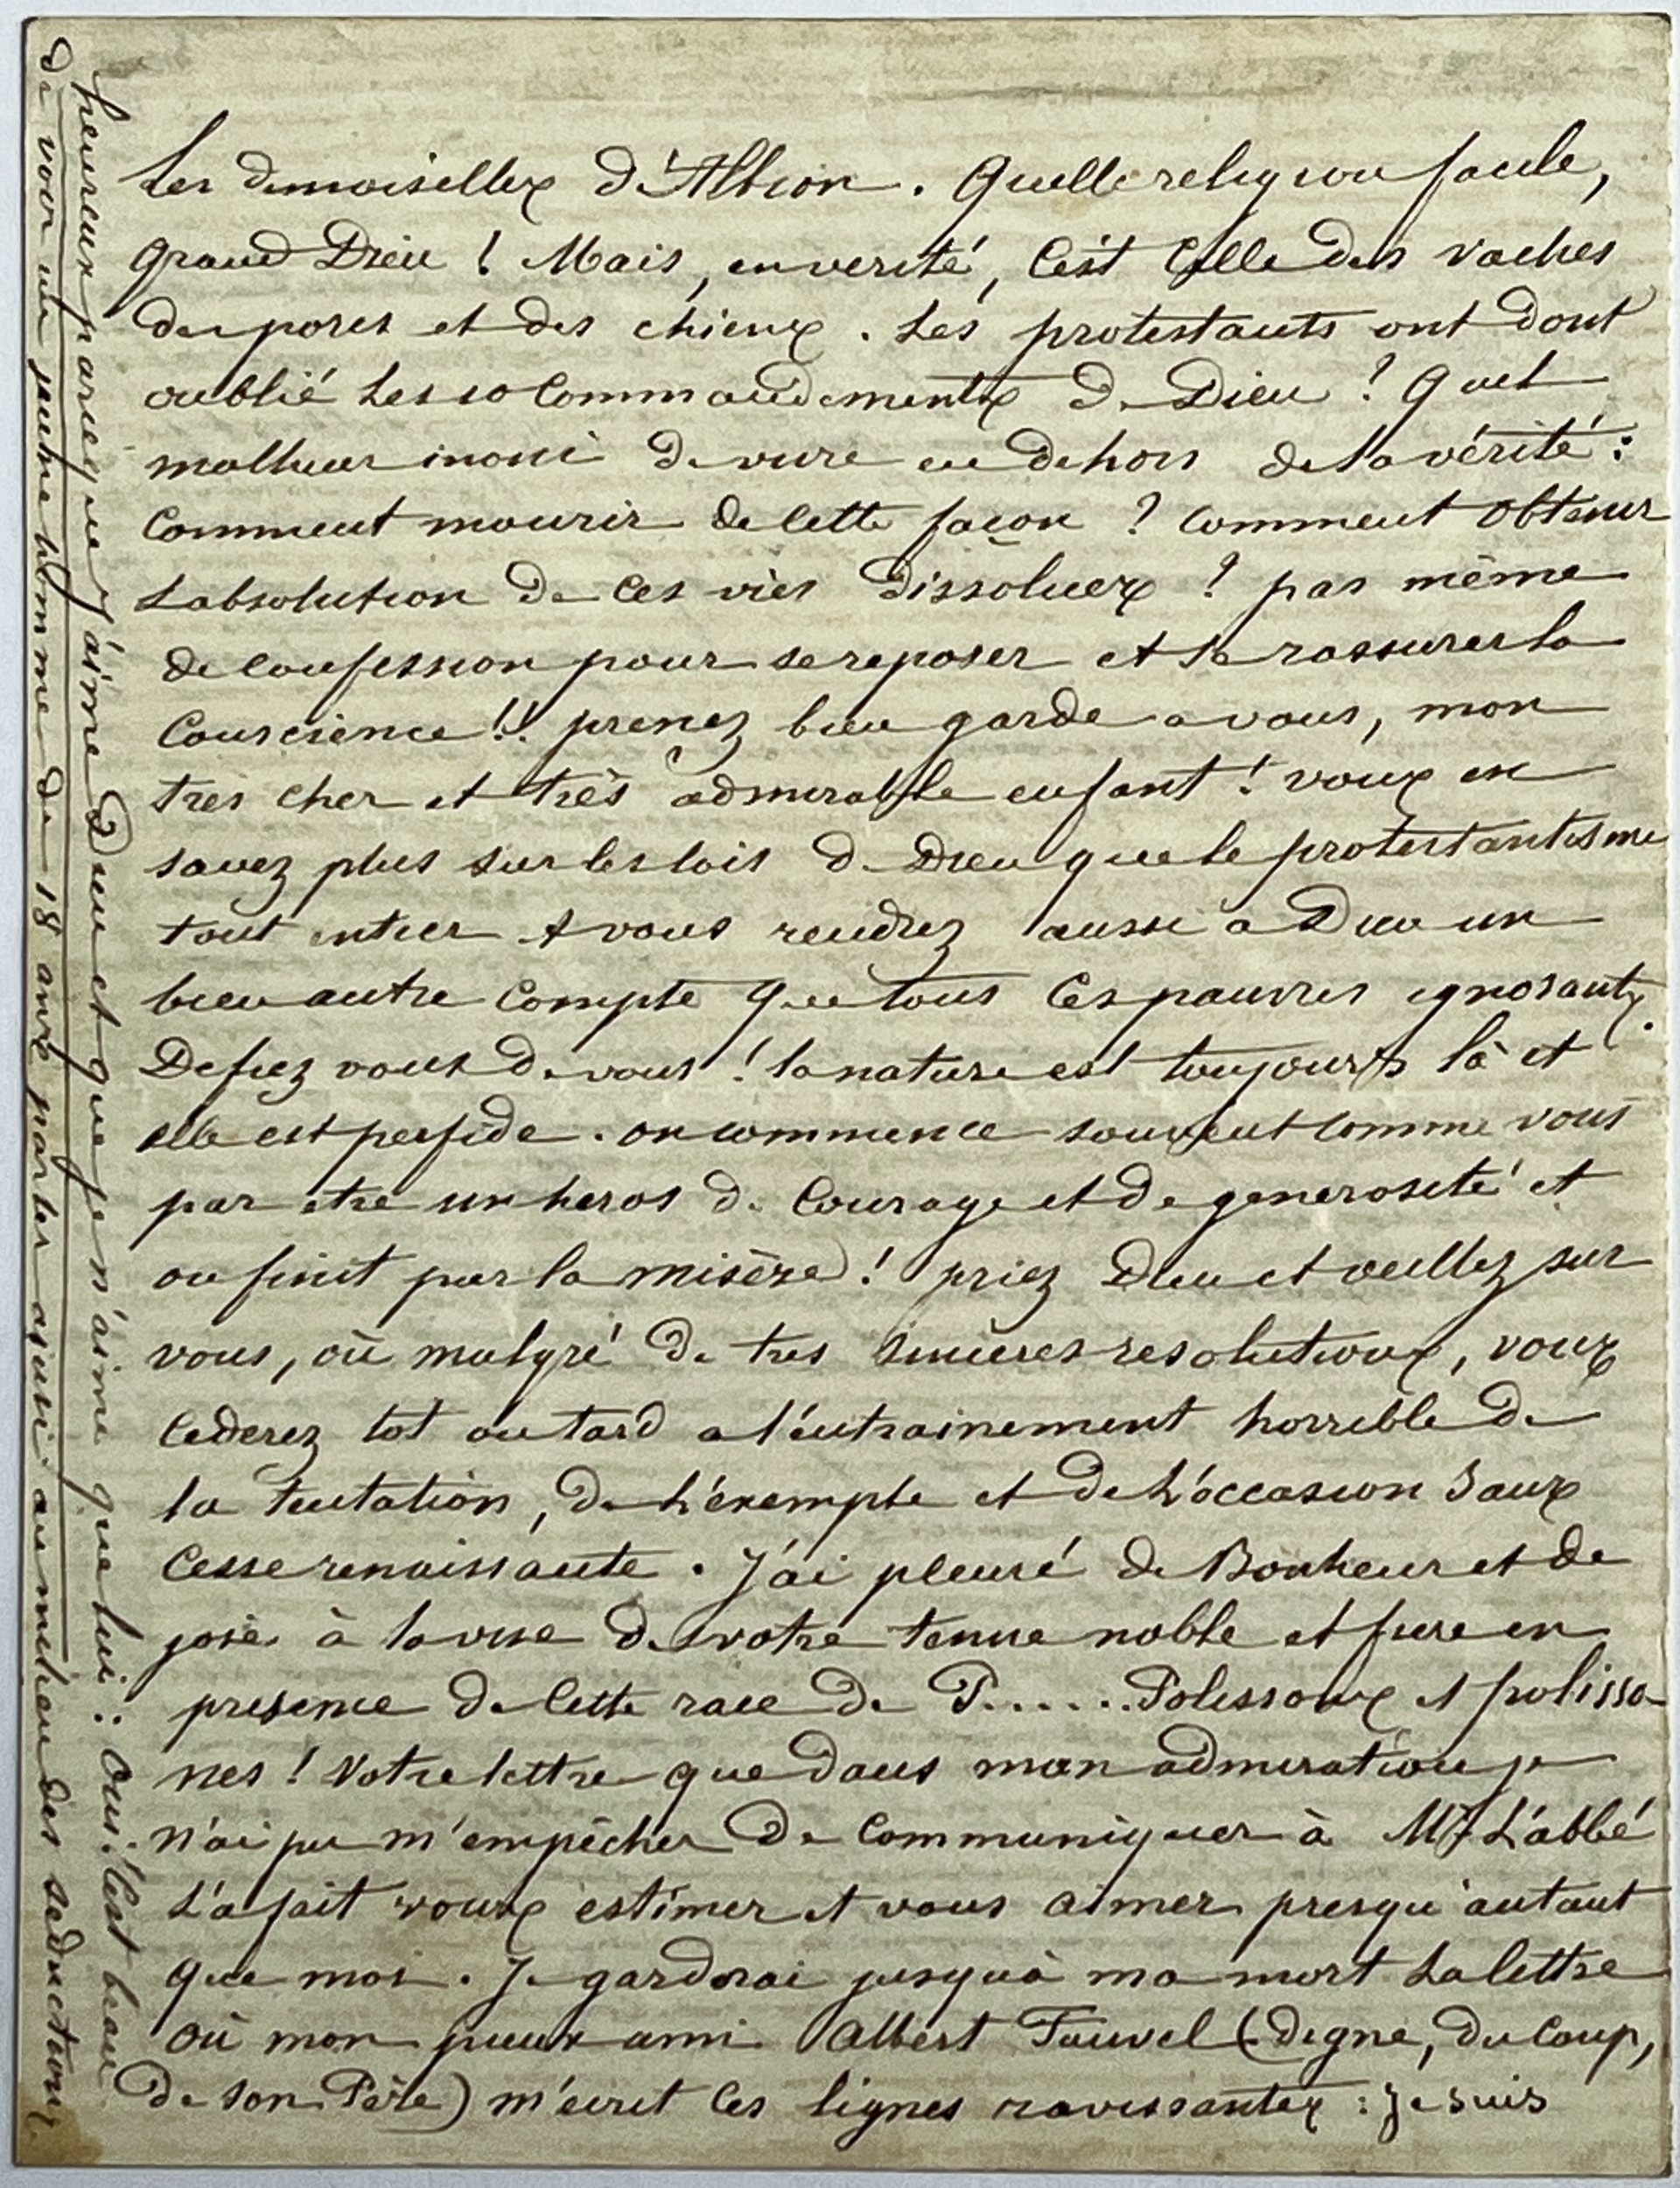 les demoiselles d'Albion. Quelle religion facile,
grand Dieu ! Mais, en verité, C'est Celle des vaches
des porcs et des chiens. Les protestants ont dont
oublié les 10 Commandements de Dieu ? Quel
malheur inoui de vivre en dehors de la vérité :
Comment mourir de cette façon ? Comment obtenir
L'absolution de ces vies dissolues ? pas même
de confession pour se reposer et se rassurer la
Conscience !! prenez bien garde a vous, mon
très cher et très admirable enfant ! vous en
savez plus sur les lois de Dieu que le protestantisme
tout entier & vous rendrez aussi a Dieu un
bien autre Compte que tous Ces pauvres ignorants.
Defiez vous de vous ! la nature est toujours là et
elle est perfide. on commence souvent comme vous
par etre un heros de Courage et de generosité et
on finit par la misère ! priez Dieu et veillez sur
vous, où malgré de tres sincères resolutions, vous
Cederez tot ou tard a l'entrainement horrible de
la tentation, de L'exemple et de L'occasion Sans
Cesse renaissante. J'ai pleuré de Bonheur et de
joie à la vue de votre tenue noble et pure en
presence de Cette race de P...... Polissons et polisso-
nes ! Votre lettre que dans mon admiration je
n'ai pu m'empêcher de Communiquer à Mr L'abbé
L'a fait vous estimer et vous aimer presqu'autant
que moi. Je garderai jusqu'à ma mort La lettre
où mon pieux ami Albert Fauvel (digne, du Coup,
de son Père) m'ecrit Ces lignes ravissantes : Je suis
heureux parceque J'aime Dieu et que je n'aime que lui : Oui. C'est beau
de voir un jeune homme de 18 ans parler ainsi au milieu des seductions